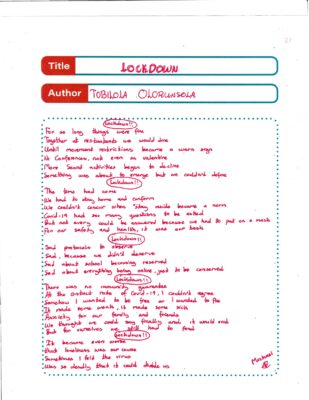 Title LOCKDOWN
Author TOBILOLA OLORUNSOLA
Lockdown!!
For so long things were fine
Together at restaurants we would dine
Until movement restrictions became a warn sign
At Conferences, not even on valentine
More Social activities began to decline
Something was about to emerge but we couldn't define
Lockdown!!
The time had come
We had to stay home and conform
We couldn't concur when 'stay inside became a norm
Covid-19 had so many questions to be asked
But not every could be answered because we had to put on a mask
For our safety and health, it was our task
Lockdown!!
Sad protocols to observe
Sad, because we didn't deserve
Sad about school becoming reserved
Sad about everything being online, just to be conserved
Lockdown!!
There was no immunity guarantee
At the distinct rate of Covid-19, I couldn't agree
Somehow I wanted to be free or I wanted to flee
It made some weak, it made some sick
Anxiety for our family and friends
We thought we could stay finally and it would end
But for ourselves we still had to fend
Lockdown!!
It became even worse
that loneliness was our cause
Sometimes I felt the virus
Was so deadly that it could divide us